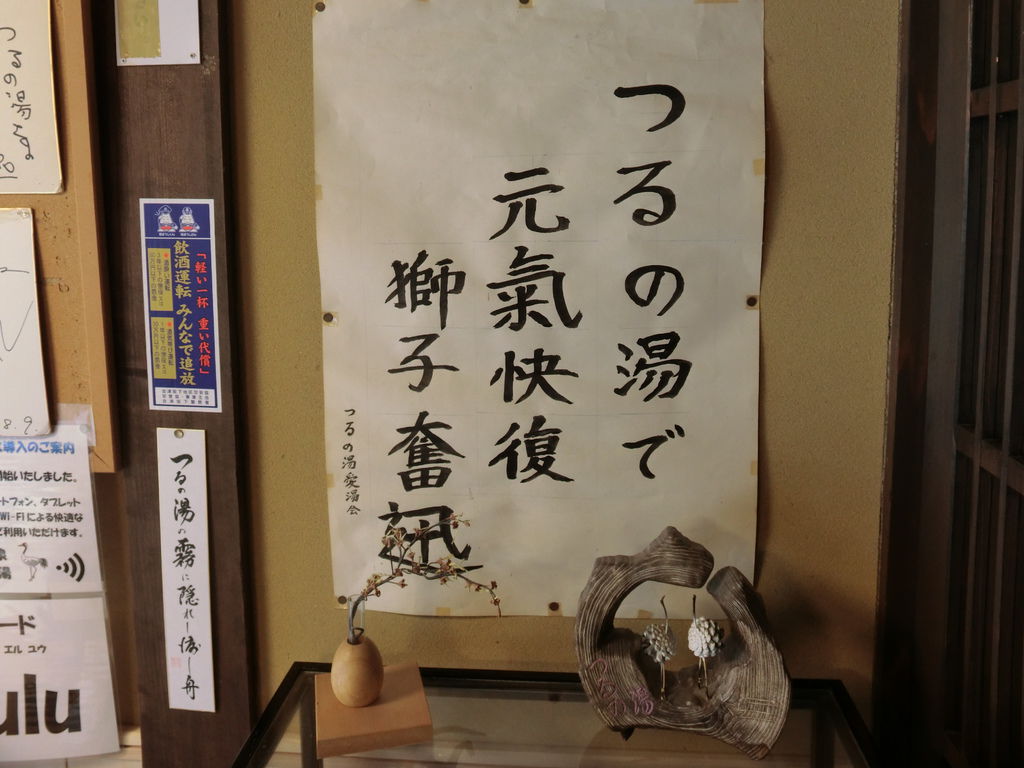 つるの湯で
元氣快復
獅子奮迅
つるの湯愛湯会
「軽い一杯 重い代償」
飲酒運転 みんなで追放
つるの湯の霧に隠れし渡し舟
つるの湯さん
8.9.
導入のご案内
開始いたしました。
トフォン、タブレット
Wi-Fiによる快適な
ご利用いただけます。
湯
ード
エル ユウ
ulu
つるの湯